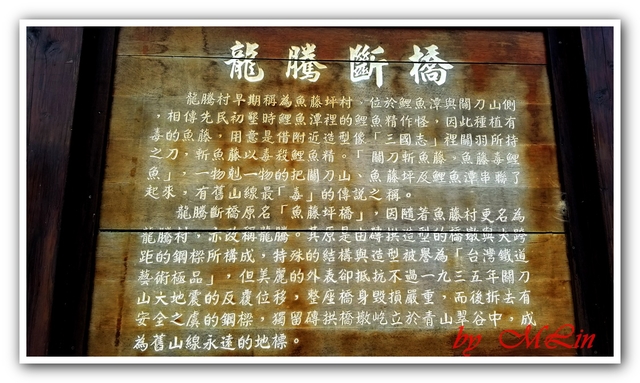 龍騰斷橋
龍騰村早期稱為魚藤坪村，位於鯉魚潭與關刀山側
，相傳先民初墾時鯉魚潭裡的鯉魚精作怪，因此種植有
毒的魚藤，用意是借附近造型像「三國志」裡關羽所持
之刀，斬魚藤以毒殺鯉魚精。「關刀斬魚藤、魚藤毒鯉
魚」，一物剋一物的把關刀山、魚藤坪及鯉魚潭串聯了
起來，有舊山線最「毒」的傳說之稱。
龍騰斷橋原名「魚藤坪橋」，因隨著魚藤村更名為
龍騰村，亦改稱龍騰。其原是由磚拱造型的橋墩與大跨
距的鋼樑所構成，特殊的結構與造型被譽為「台灣鐵道
藝術極品」，但美麗的外表卻抵抗不過一九三五年關刀
山大地震的反覆位移，整座橋身毀損嚴重，而後拆去有
安全之虞的鋼樑，獨留磚拱橋墩屹立於青山翠谷中，成
為舊山線永遠的地標。
by MLin